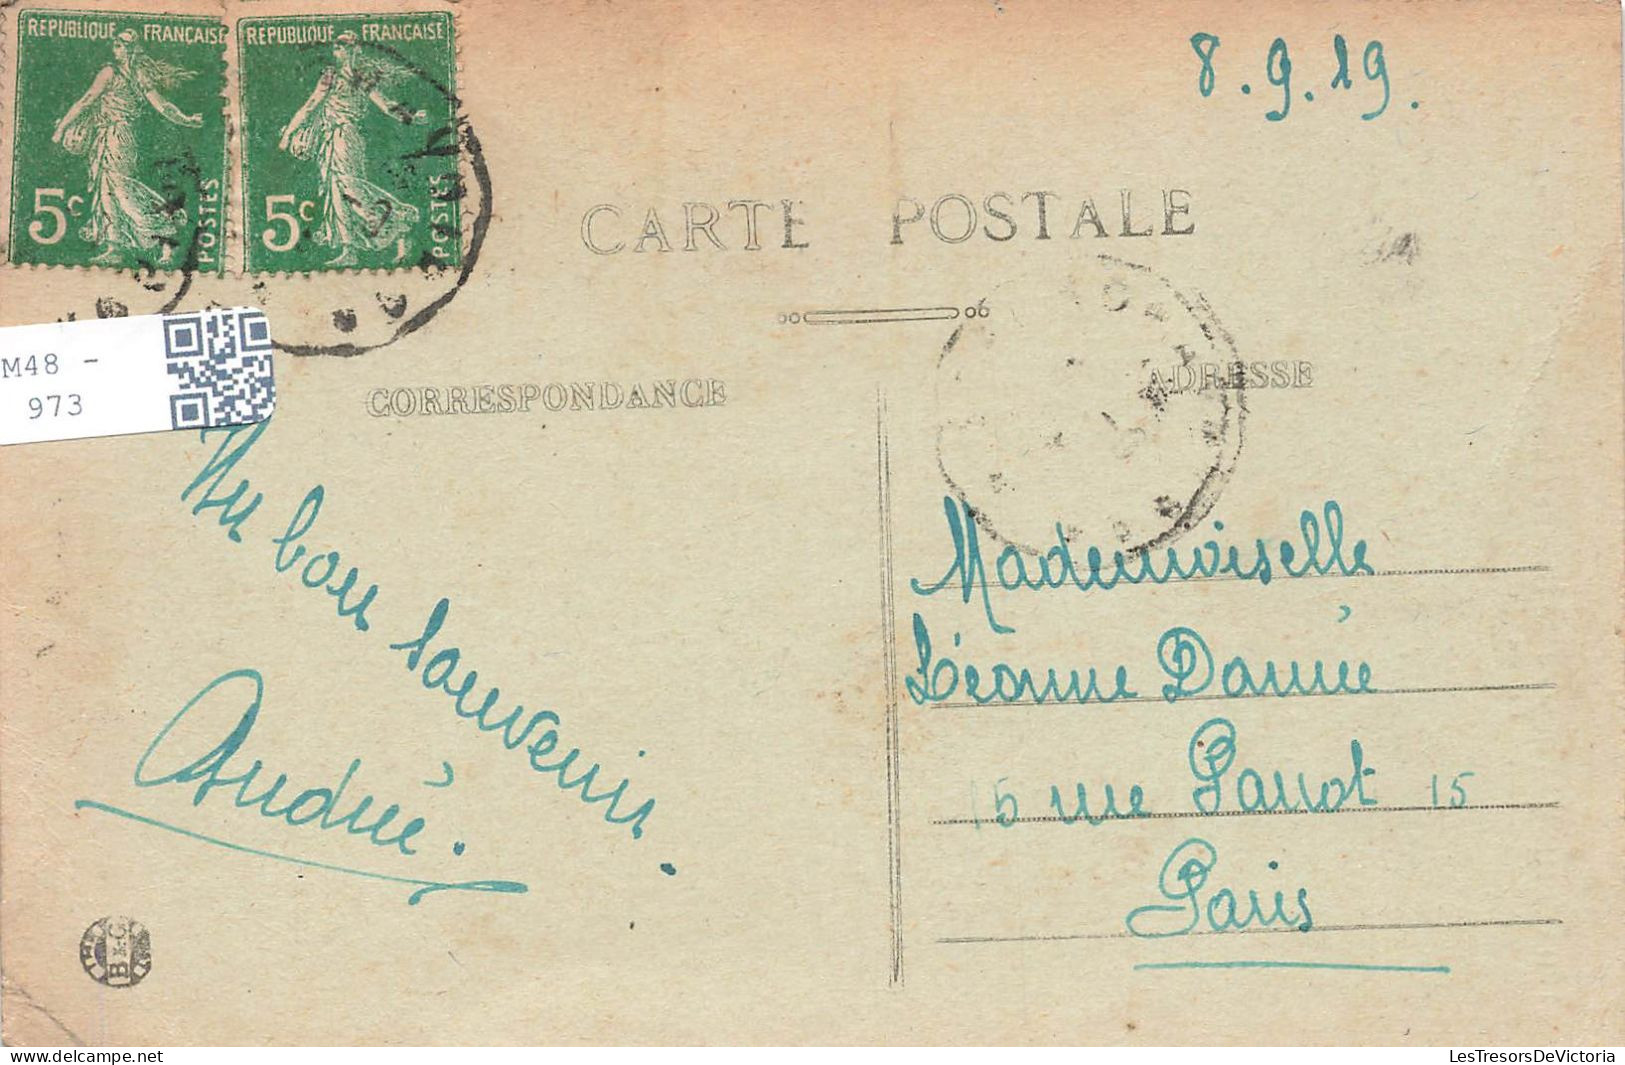 REPUBLIQUE FRANÇAISE
5c POSTES
REPUBLIQUE FRANÇAISE
5c POSTES
8.9.19.
CARTE POSTALE
M48 -
973
CORRESPONDANCE
ADRESSE
Un bon souvenir.
Andrée.
Mademoiselle
Léonne
15 rue 15
Paris
B & C
LesTresorsDeVictoria